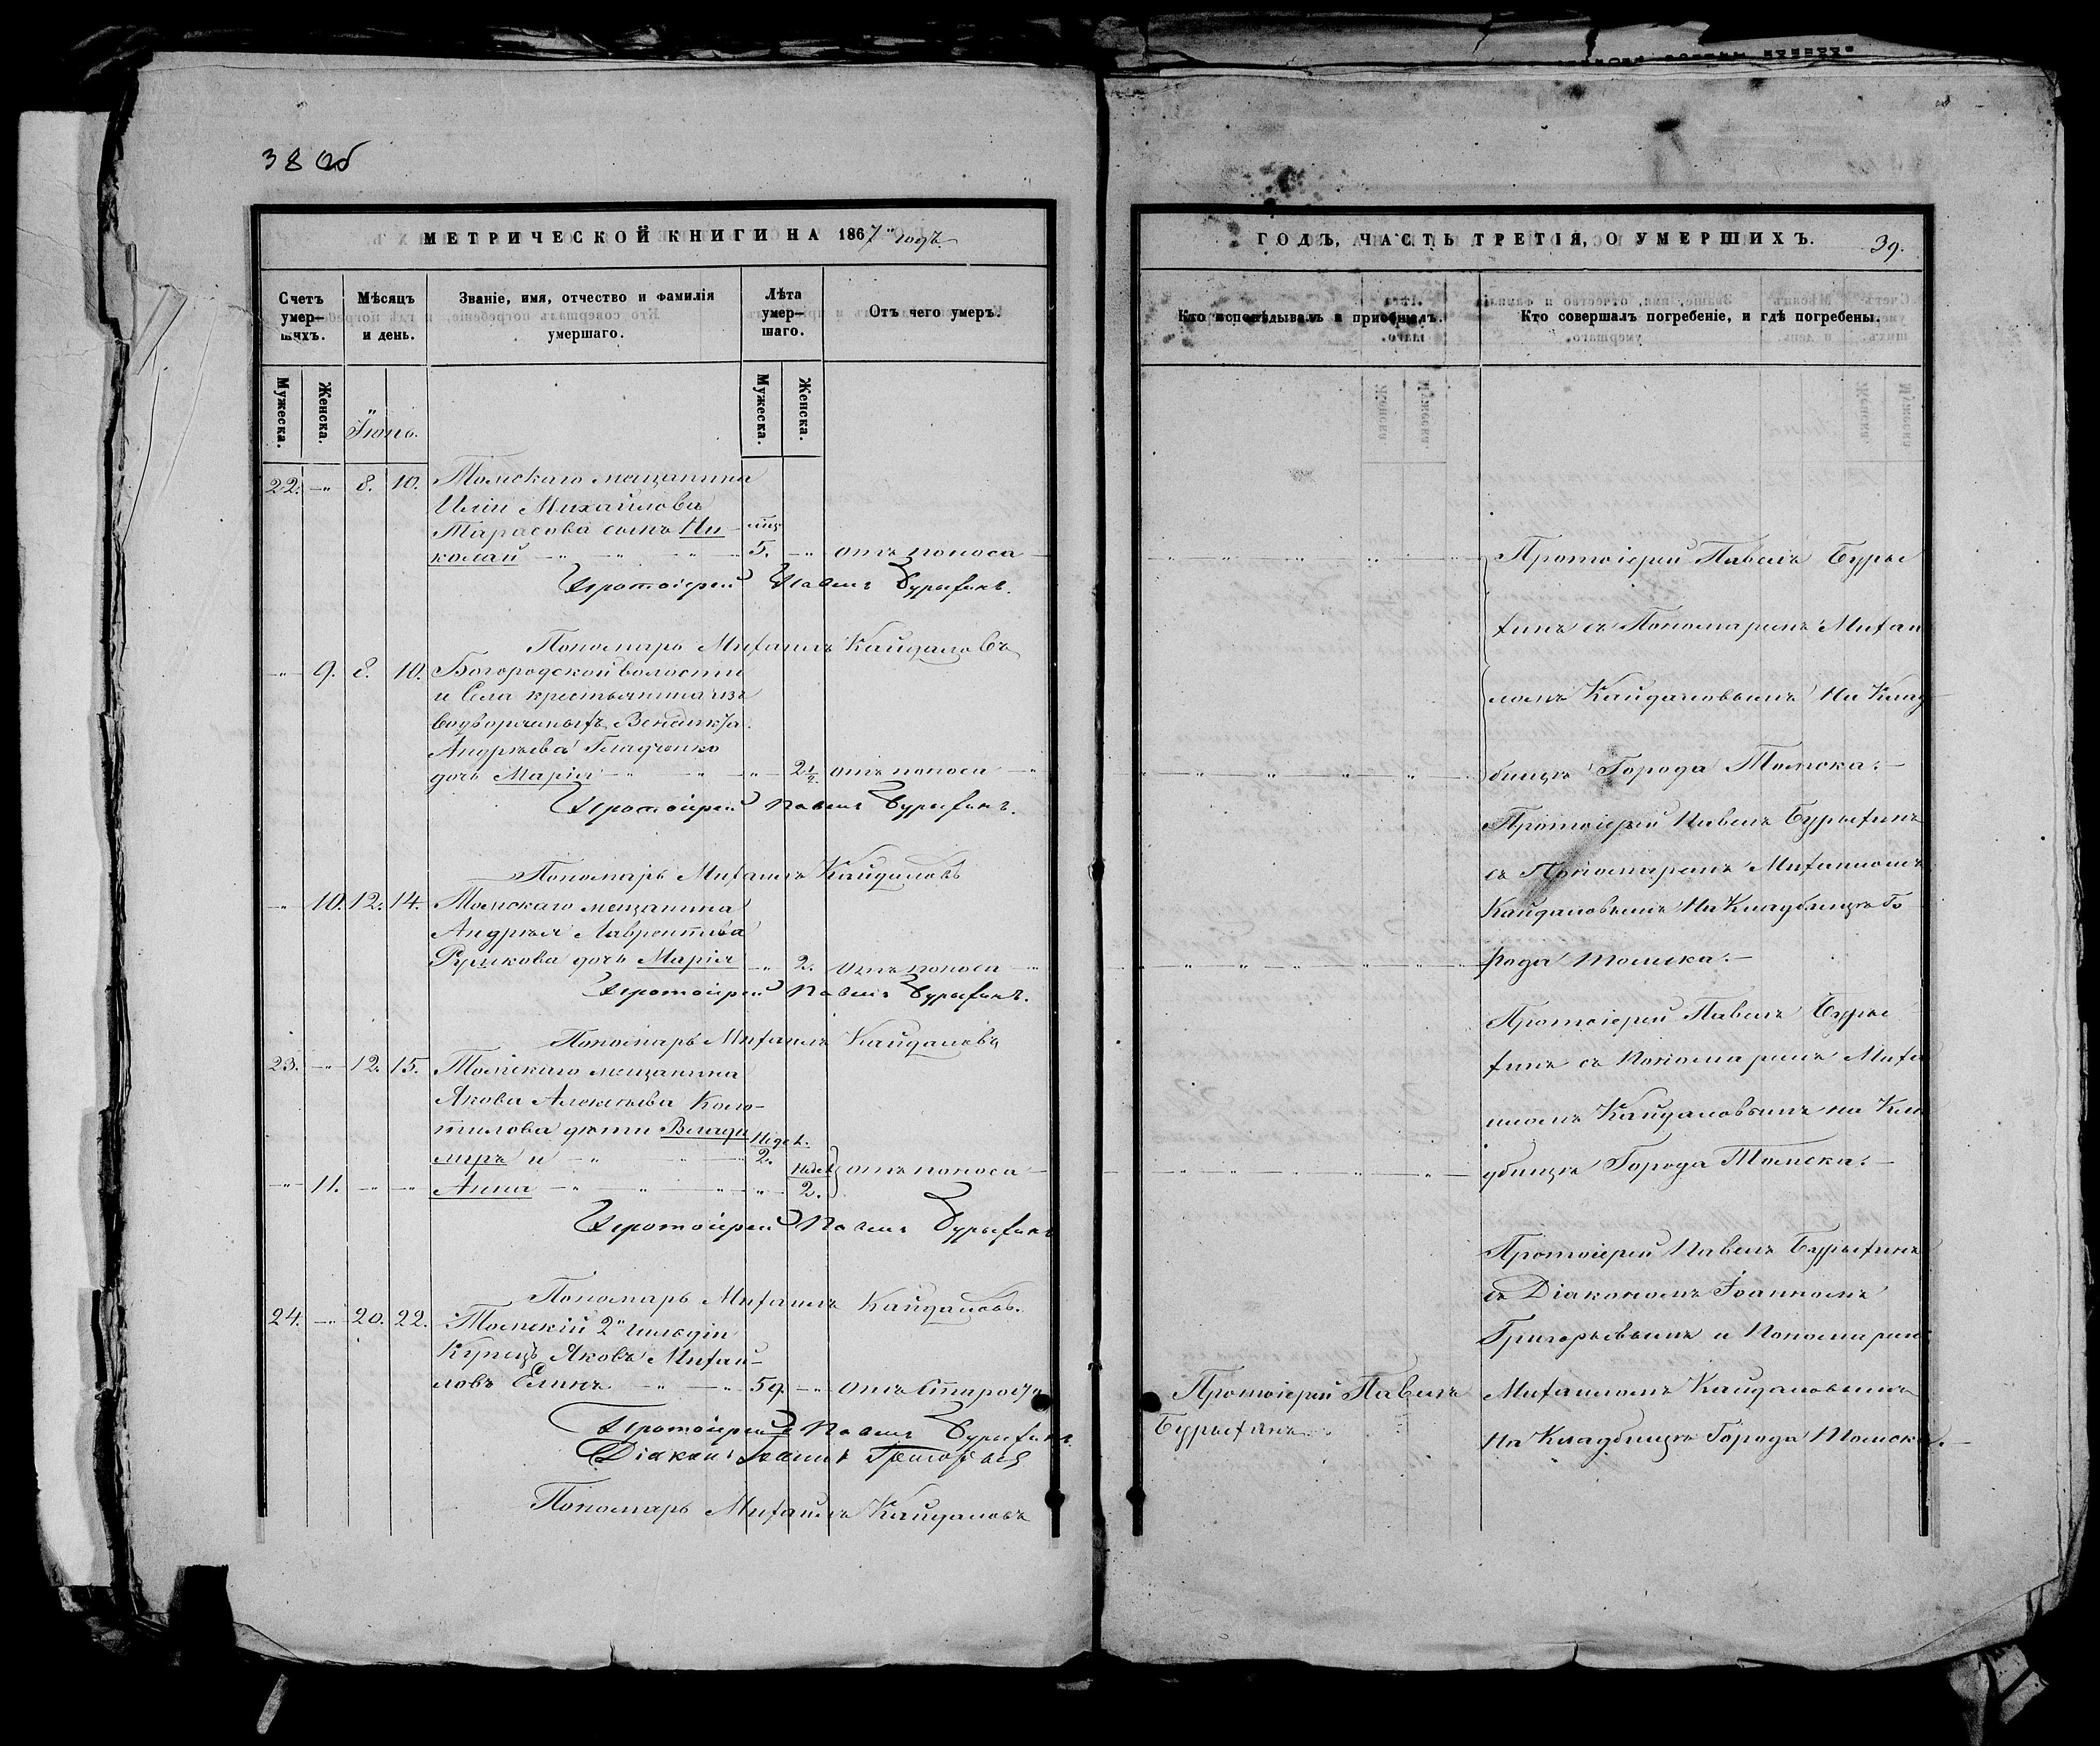 38 об
МЕТРИЧЕСКОЙ КНИГИ НА 1867 годъ
Счетъ умер-шихъ.
Мѣсяцъ и день.
Званіе, имя, отчество и фамилія умершаго.
Лѣта умер-шаго.
Отъ чего умеръ.
Мужеска.
Женска.
Іюнь.
Мужеска.
Женска.
22. 8. 10. Томскаго мещанина
Иліи Михайлова
Тарасова сынъ Ни-
колай 5. отъ поноса
Протоіерей Павелъ Бурыхинъ.
Пономарь Михаилъ Кайдаловъ
9. 8. 10. Богородской волости
и Села крестьянина изъ
водворенныхъ
Андреева Гладченко
дочь Марія 2 1/2 отъ поноса
Протоіерей Павелъ Бурыхинъ.
Пономарь Михаилъ Кайдаловъ
10. 12. 14. Томскаго мещанина
Андрея Лаврентьева
дочь Марія 2. отъ поноса
Протоіерей Павелъ Бурыхинъ.
Пономарь Михаилъ Кайдаловъ
23. 12. 15. Томскаго мещанина
Якова Алексѣева
дѣти Влади
миръ и 2.
11. Анна 2. отъ поноса
Протоіерей Павелъ Бурыхинъ
Пономарь Михаилъ Кайдаловъ.
24. 20. 22. Томскій 2й гильдіи
Купецъ Яковъ Михай-
ловъ Елинъ 59. отъ старости
Протоіерей Павелъ Бурыхинъ.
Діаконъ Іоаннъ Григорьевъ
Пономарь Михаилъ Кайдаловъ
ГОДЪ, ЧАСТЬ ТРЕТІЯ, О УМЕРШИХЪ.
39.
Кто исповѣдывалъ и пріобщалъ.
Кто совершалъ погребеніе, и гдѣ погребены.
Протоіерей Павелъ Буры
хинъ съ Пономаремъ Михаи
ломъ Кайдаловымъ на Клад
бищѣ Города Томска.
Протоіерей Павелъ Бурыхинъ
съ Пономаремъ Михаиломъ
Кайдаловымъ на Кладбищѣ Го
рода Томска.
Протоіерей Павелъ Буры
хинъ съ Пономаремъ Миха
иломъ Кайдаловымъ на Кла
дбищѣ Города Томска.
Протоіерей Павелъ Бурыхинъ
съ Діакономъ Іоанномъ
Григорьевымъ и Пономаремъ
Протоіерей Павелъ Бурыхинъ.
Михаиломъ Кайдаловымъ
на Кладбищѣ Города Томска.